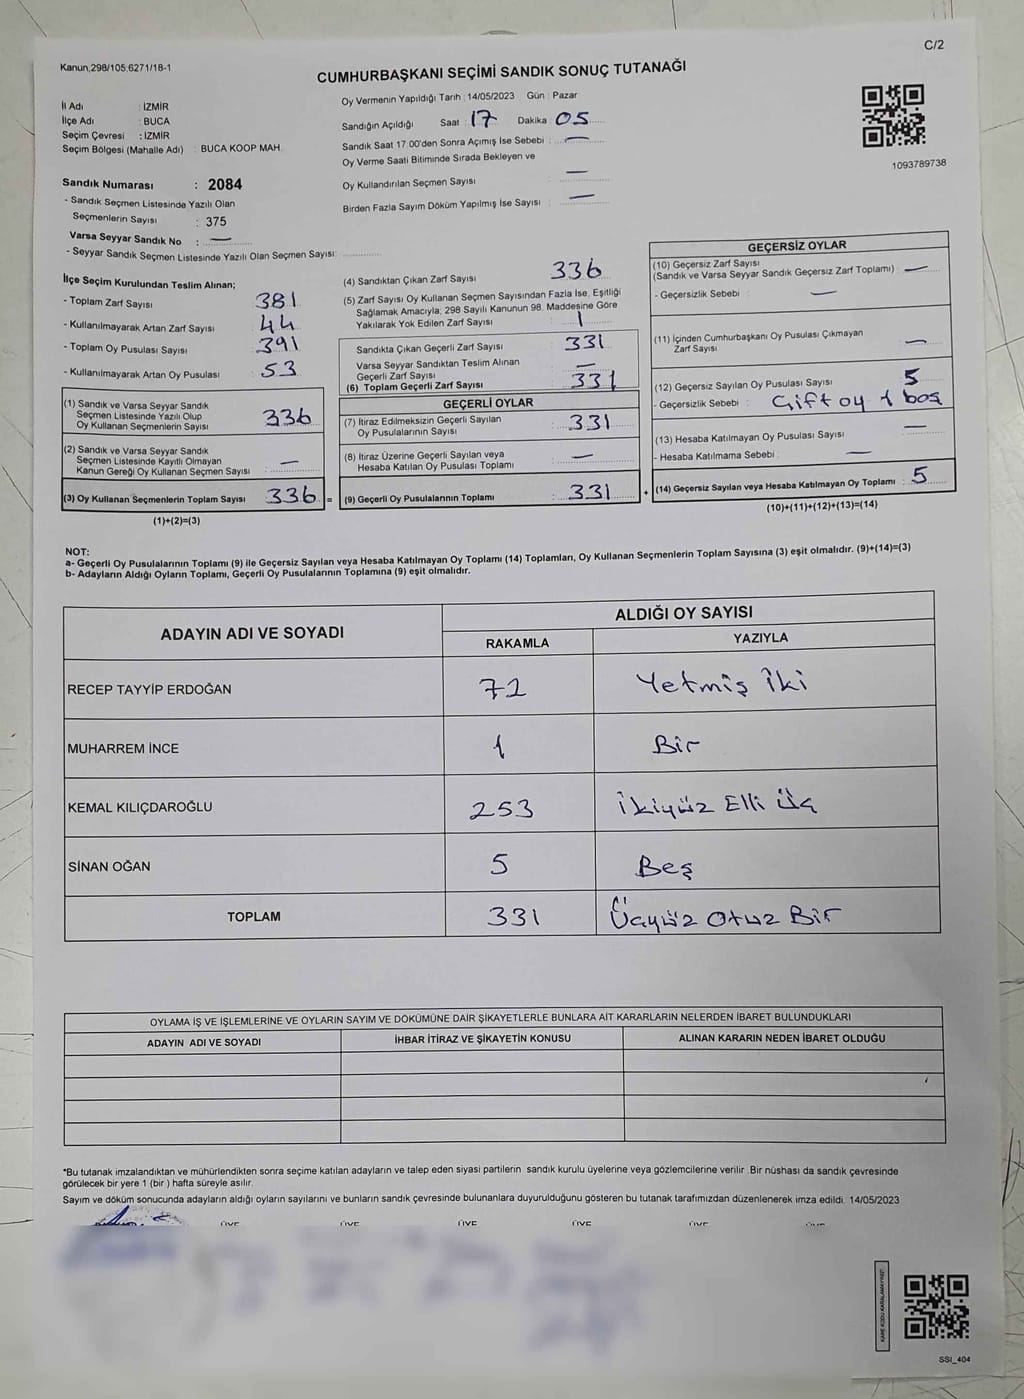 C/2
Kanun,298/105,6271/18-1
CUMHURBAŞKANI SEÇİMİ SANDIK SONUÇ TUTANAĞI
İl Adı : İZMİR
İlçe Adı : BUCA
Seçim Çevresi : İZMİR
Seçim Bölgesi (Mahalle Adı) : BUCA KOOP MAH.
Sandık Numarası : 2084
- Sandık Seçmen Listesinde Yazılı Olan
Seçmenlerin Sayısı : 375
Varsa Seyyar Sandık No : —
- Seyyar Sandık Seçmen Listesinde Yazılı Olan Seçmen Sayısı:
Oy Vermenin Yapıldığı Tarih : 14/05/2023 Gün : Pazar
Sandığın Açıldığı Saat : 17 Dakika : 05
Sandık Saat 17.00'den Sonra Açımış İse Sebebi : —
Oy Verme Saati Bitiminde Sırada Bekleyen ve
Oy Kullandırılan Seçmen Sayısı : —
Birden Fazla Sayım Döküm Yapılmış İse Sayısı : —
1093789738
İlçe Seçim Kurulundan Teslim Alınan;
- Toplam Zarf Sayısı : 381
- Kullanılmayarak Artan Zarf Sayısı : 44
- Toplam Oy Pusulası Sayısı : 391
- Kullanılmayarak Artan Oy Pusulası : 53
(1) Sandık ve Varsa Seyyar Sandık
Seçmen Listesinde Yazılı Olup
Oy Kullanan Seçmenlerin Sayısı : 336
(2) Sandık ve Varsa Seyyar Sandık
Seçmen Listesinde Kayıtlı Olmayan
Kanun Gereği Oy Kullanan Seçmen Sayısı : —
(3) Oy Kullanan Seçmenlerin Toplam Sayısı : 336 =
(1)+(2)=(3)
(4) Sandıktan Çıkan Zarf Sayısı 336
(5) Zarf Sayısı Oy Kullanan Seçmen Sayısından Fazla İse, Eşitliği
Sağlamak Amacıyla; 298 Sayılı Kanunun 98. Maddesine Göre
Yakılarak Yok Edilen Zarf Sayısı : 1
Sandıkta Çıkan Geçerli Zarf Sayısı : 331
Varsa Seyyar Sandıktan Teslim Alınan
Geçerli Zarf Sayısı : —
(6) Toplam Geçerli Zarf Sayısı 331
GEÇERLİ OYLAR
(7) İtiraz Edilmeksizin Geçerli Sayılan
Oy Pusulalarının Sayısı : 331
(8) İtiraz Üzerine Geçerli Sayılan veya
Hesaba Katılan Oy Pusulası Toplamı : —
(9) Geçerli Oy Pusulalarının Toplamı : 331 +
GEÇERSİZ OYLAR
(10) Geçersiz Zarf Sayısı
(Sandık ve Varsa Seyyar Sandık Geçersiz Zarf Toplamı) : —
- Geçersizlik Sebebi : —
(11) İçinden Cumhurbaşkanı Oy Pusulası Çıkmayan
Zarf Sayısı : —
(12) Geçersiz Sayılan Oy Pusulası Sayısı : 5
- Geçersizlik Sebebi : Çift oy 1 boş
(13) Hesaba Katılmayan Oy Pusulası Sayısı : —
- Hesaba Katılmama Sebebi : —
(14) Geçersiz Sayılan veya Hesaba Katılmayan Oy Toplamı : 5
(10)+(11)+(12)+(13)=(14)
NOT:
a- Geçerli Oy Pusulalarının Toplamı (9) ile Geçersiz Sayılan veya Hesaba Katılmayan Oy Toplamı (14) Toplamları, Oy Kullanan Seçmenlerin Toplam Sayısına (3) eşit olmalıdır. (9)+(14)=(3)
b- Adayların Aldığı Oyların Toplamı, Geçerli Oy Pusulalarının Toplamına (9) eşit olmalıdır.
ADAYIN ADI VE SOYADI ALDIĞI OY SAYISI
RAKAMLA YAZIYLA
RECEP TAYYİP ERDOĞAN 72 Yetmiş İki
MUHARREM İNCE 1 Bir
KEMAL KILIÇDAROĞLU 253 İkiyüz Elli Üç
SİNAN OĞAN 5 Beş
TOPLAM 331 Üçyüz Otuz Bir
OYLAMA İŞ VE İŞLEMLERİNE VE OYLARIN SAYIM VE DÖKÜMÜNE DAİR ŞİKAYETLERLE BUNLARA AİT KARARLARIN NELERDEN İBARET BULUNDUKLARI
ADAYIN ADI VE SOYADI İHBAR İTİRAZ VE ŞİKAYETİN KONUSU ALINAN KARARIN NEDEN İBARET OLDUĞU
*Bu tutanak imzalandıktan ve mühürlendikten sonra seçime katılan adayların ve talep eden siyasi partilerin sandık kurulu üyelerine veya gözlemcilerine verilir .Bir nüshası da sandık çevresinde
görülecek bir yere 1 (bir ) hafta süreyle asılır.
Sayım ve döküm sonucunda adayların aldığı oyların sayılarını ve bunların sandık çevresinde bulunanlara duyurulduğunu gösteren bu tutanak tarafımızdan düzenlenerek imza edildi. 14/05/2023
ÜYE ÜYE ÜYE ÜYE ÜYE
KARE KODU KARALAMAYINIZ!
SSI_404